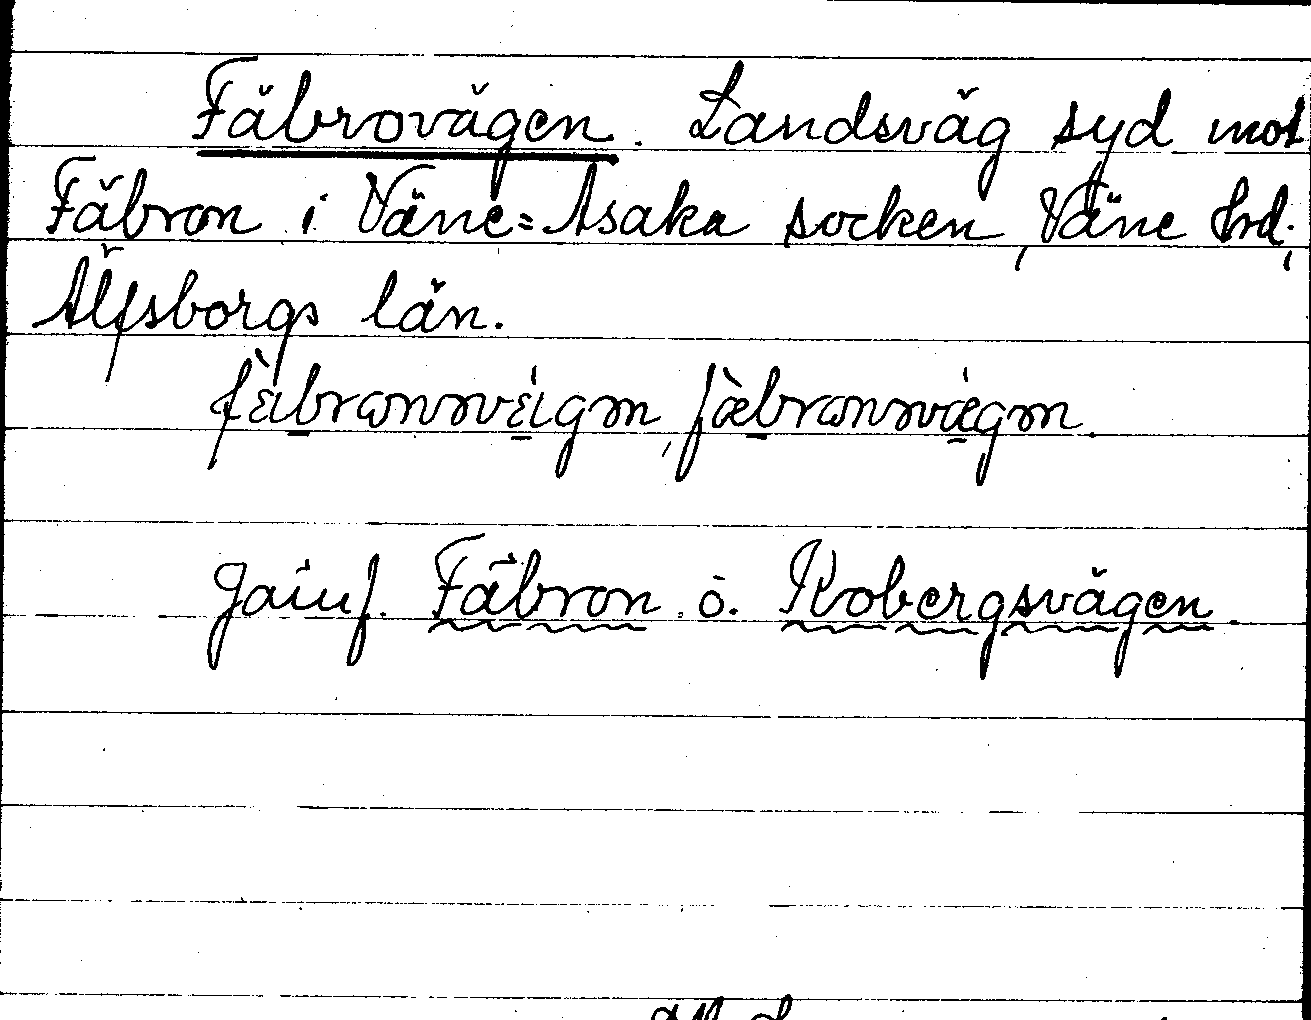 Fäbrovägen. Landsväg syd mot
Fäbron i Väne=Åsaka socken, Väne hrd.,
Älfsborgs län.
fὲbronnvέign, fæ̀bronnvǽgn.
Jämf. Fäbron o. Robergsvägen.